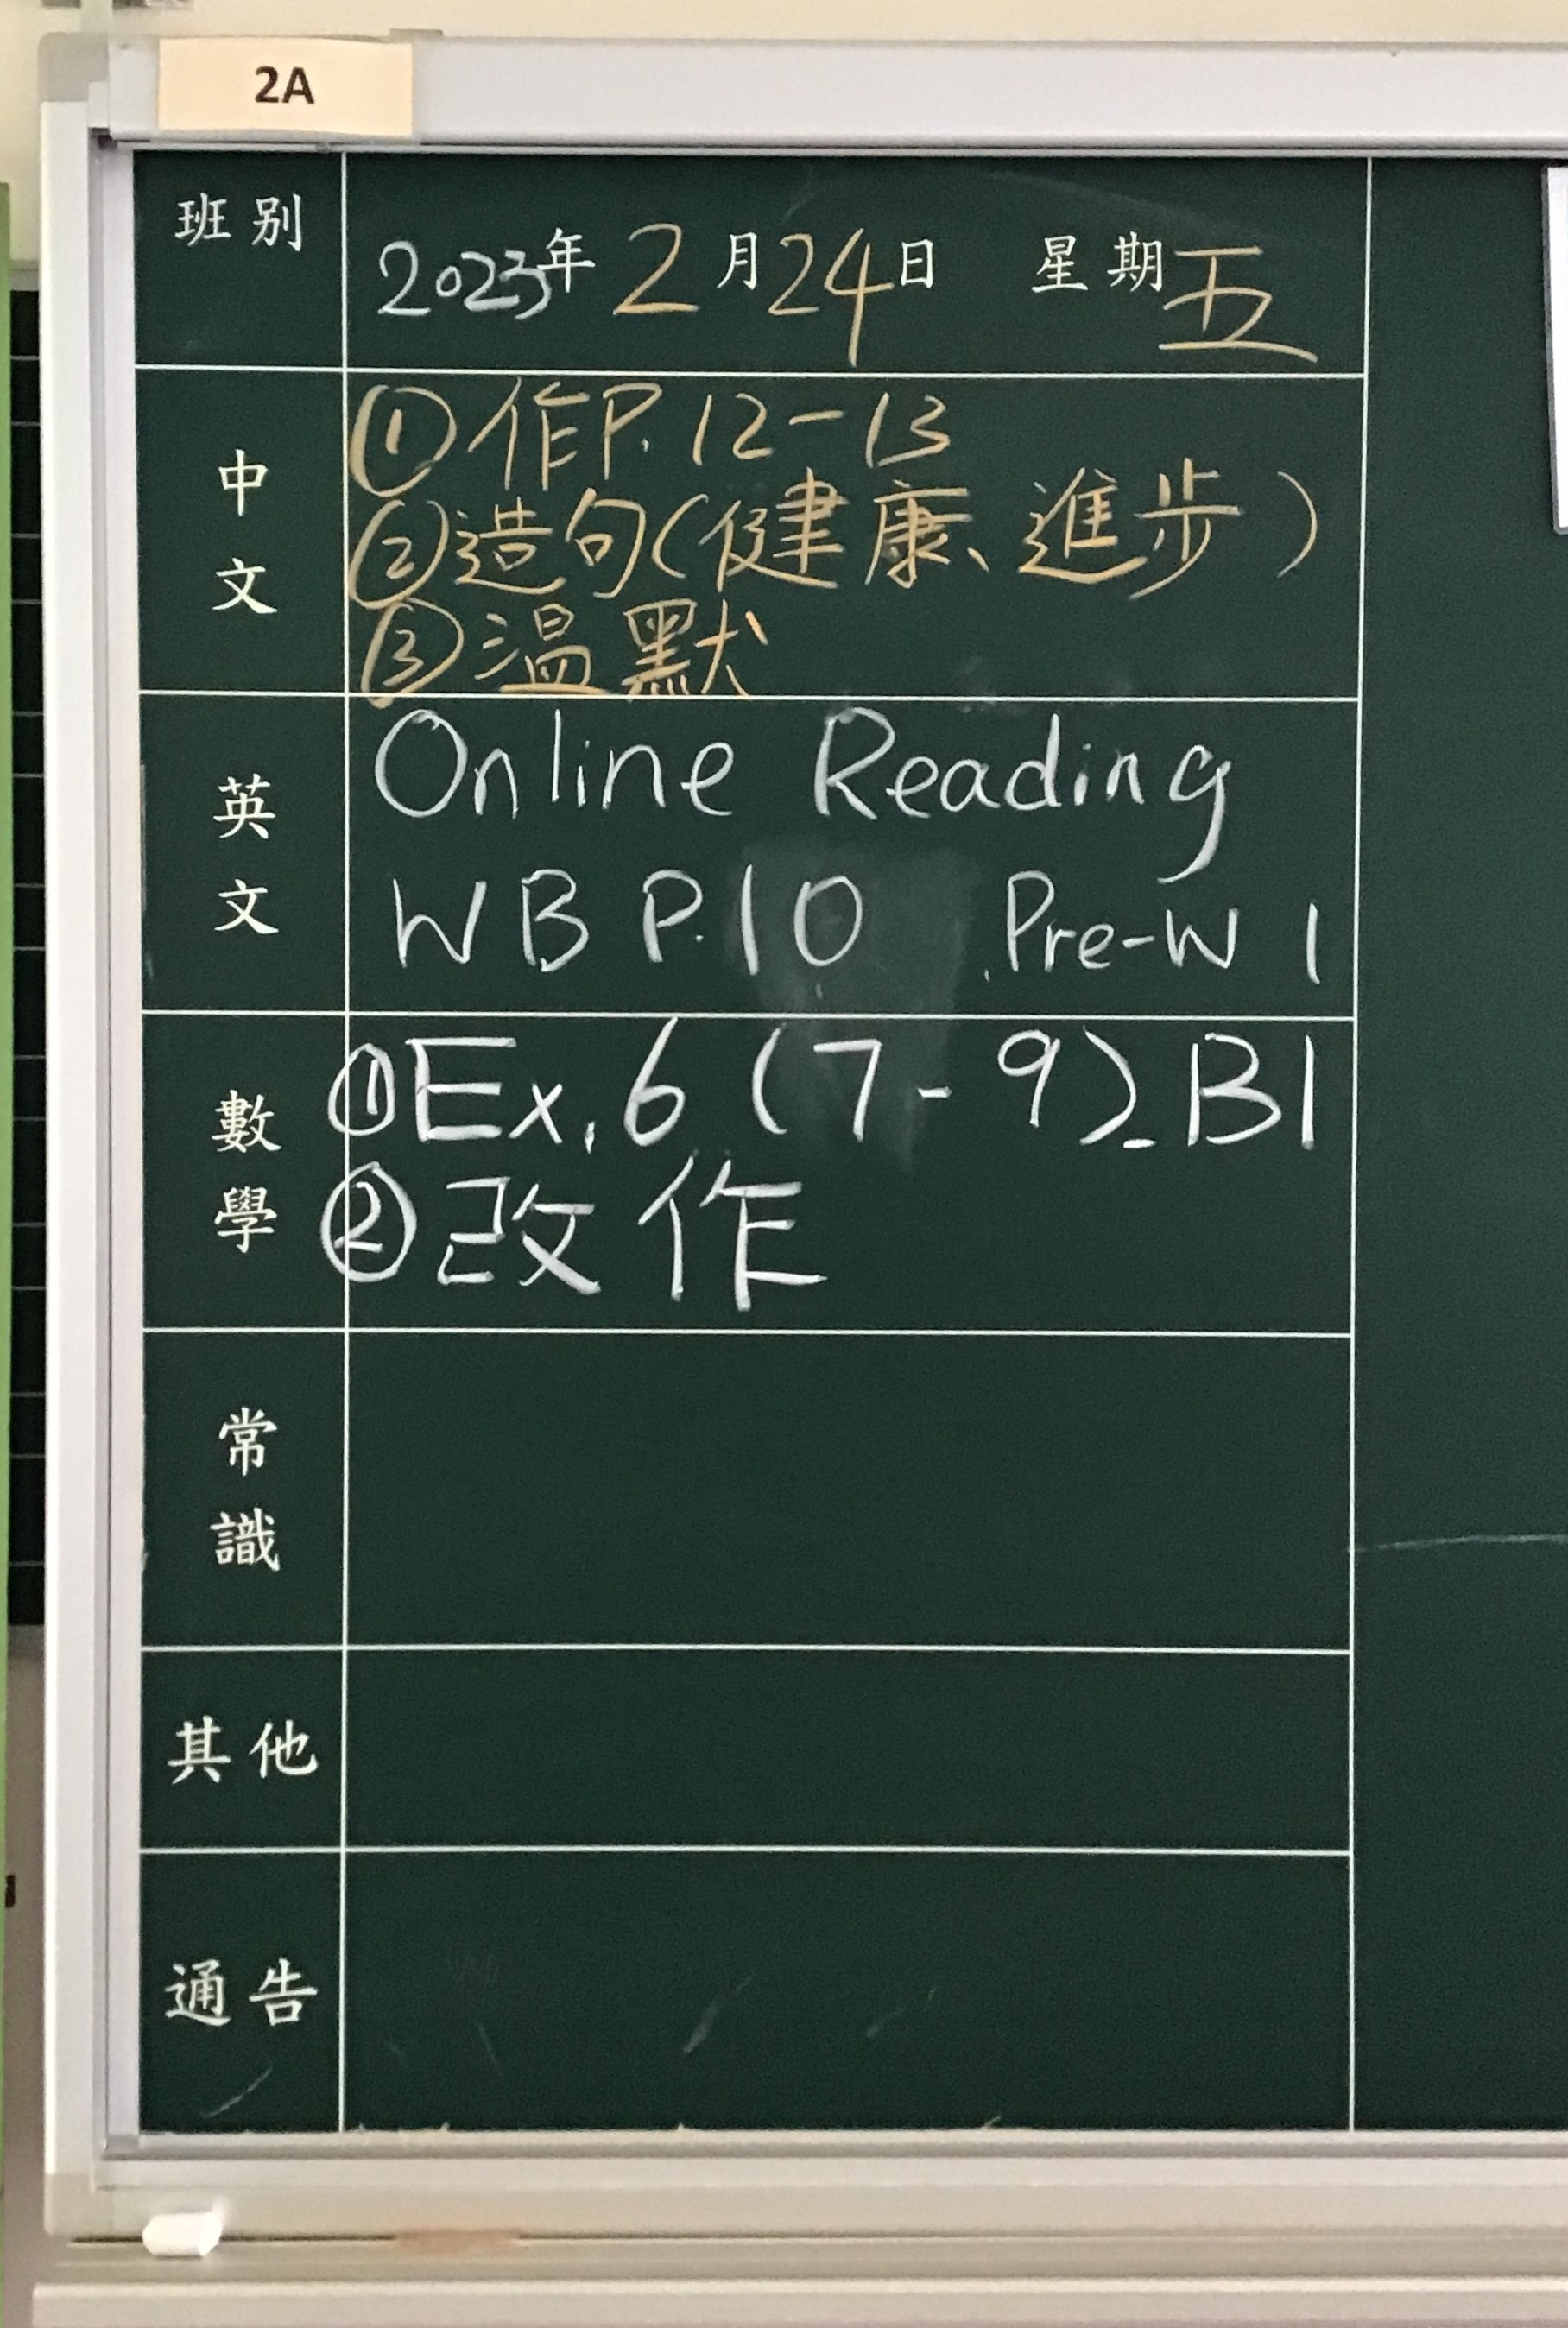 2A
班別
2023年 2月24日 星期五
中文
①作P.12-13
②造句(健康、進步)
③溫默
英文
Online Reading
WB P.10 Pre-W 1
數學
①Ex.6 (7-9)_B1
②改作
常識
其他
通告